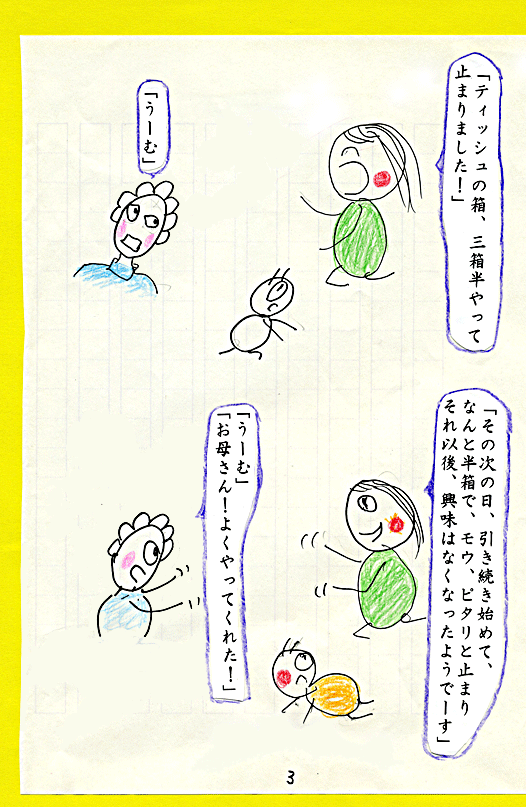 「ティッシュの箱、三箱半やって
止まりました！」
「うーむ」
「その次の日、引き続き始めて、
なんと半箱で、モウ、ピタリと止まり
それ以後、興味はなくなったようでーす」
「うーむ」
「お母さん！よくやってくれた！」
3